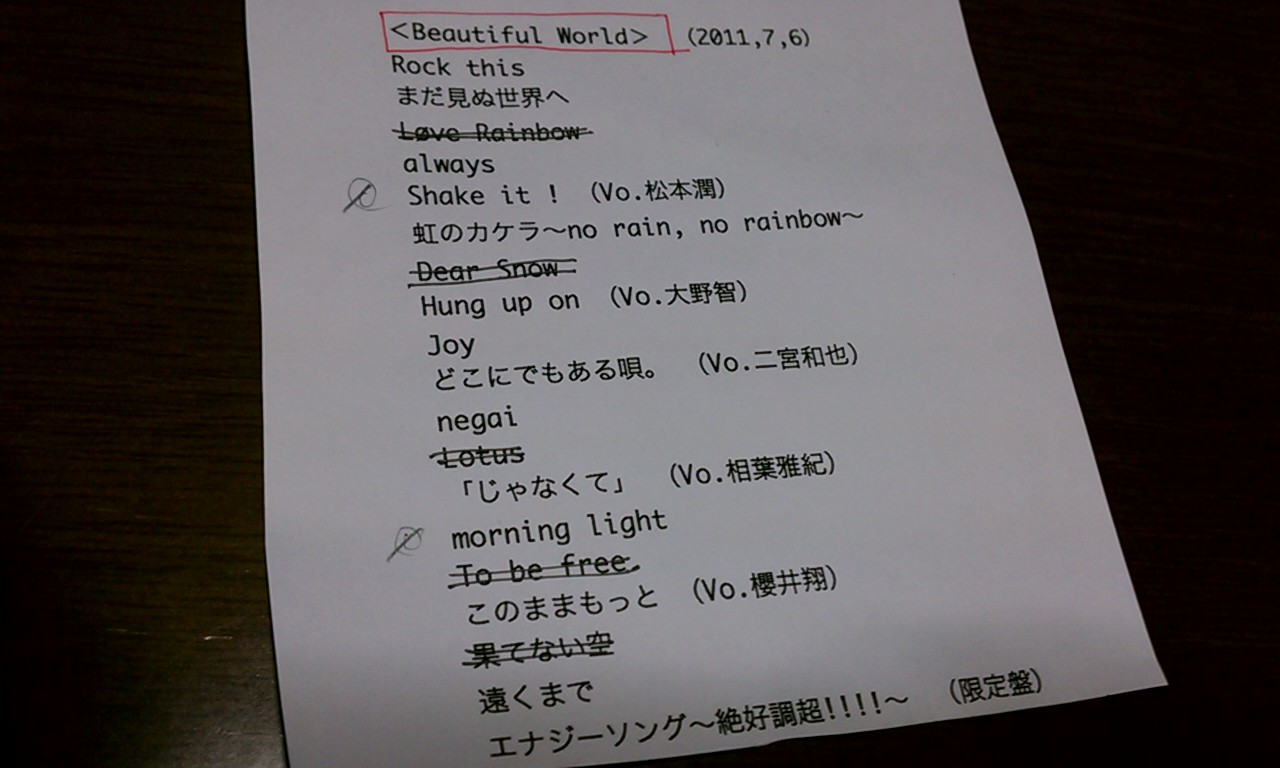 <Beautiful World> (2011,7,6)
Rock this
まだ見ぬ世界へ
Løve Rainbow
always
Shake it ! (Vo.松本潤)
虹のカケラ～no rain, no rainbow～
Dear Snow
Hung up on (Vo.大野智)
Joy
どこにでもある唄。 (Vo.二宮和也)
negai
Lotus
「じゃなくて」 (Vo.相葉雅紀)
morning light
To be free
このままもっと (Vo.櫻井翔)
果てない空
遠くまで
エナジーソング～絶好調超!!!!～ (限定盤)